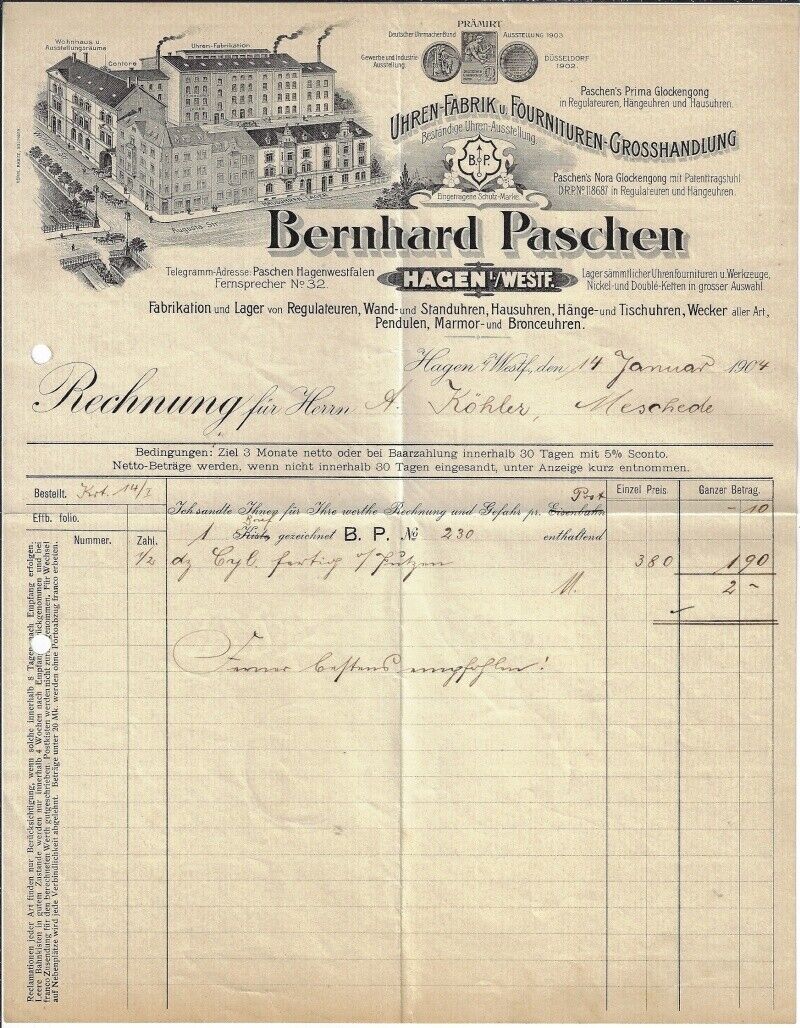 Wohnhaus u.
Ausstellungsräume
Contore
Uhren-Fabrikation
Augusta-Str.
PRÄMIRT
Deutscher Uhrmacher-Bund AUSSTELLUNG 1903
Gewerbe und Industrie-
Ausstellung.
DÜSSELDORF
1902.
Paschen's Prima Glockengong
in Regulateuren, Hängeuhren und Hausuhren.
UHREN-FABRIK u. FOURNITUREN-GROSSHANDLUNG
Beständige Uhren-Ausstellung.
B & P.
Eingetragene Schutz-Marke.
Paschen's Nora Glockengong mit Patenttragstuhl
D.R.P. No 118687 in Regulateuren und Hängeuhren.
Bernhard Paschen
Telegramm-Adresse: Paschen Hagenwestfalen
Fernsprecher No 32.
HAGEN i/WESTF.
Lager sämmtlicher Uhrenfournituren u. Werkzeuge,
Nickel- und Doublé-Ketten in grosser Auswahl.
Fabrikation und Lager von Regulateuren, Wand- und Standuhren, Hausuhren, Hänge- und Tischuhren, Wecker aller Art,
Pendulen, Marmor- und Bronceuhren.
Hagen i/Westf., den 14 Januar 1904
Rechnung für Herrn A. Köhler, Meschede
Bedingungen: Ziel 3 Monate netto oder bei Baarzahlung innerhalb 30 Tagen mit 5% Sconto.
Netto-Beträge werden, wenn nicht innerhalb 30 Tagen eingesandt, unter Anzeige kurz entnommen.
Bestellt. Krt. 14/1
Einzel Preis. Ganzer Betrag.
Post
Ich sandte Ihnen für Ihre werthe Rechnung und Gefahr pr. Eisenbahn - 10
Effb. folio.
Brief
1 Kiste gezeichnet B. P. No 230 enthaltend
Nummer. Zahl.
1/2 dz Cyl. fertig z/putzen 380 190
M. 2 -
Ferner bestens empfohlen!
Reclamationen jeder Art finden nur Berücksichtigung, wenn solche innerhalb 8 Tagen nach Empfang erfolgen.
Leere Bahnkisten in gutem Zustande werden nur innerhalb 4 Wochen nach Empfang zurückgenommen und bei
franco Zusendung für den berechneten Werth gutgeschrieben. Postkisten werden nicht zurückgenommen. Für Wechsel
auf Nebenplätze wird jede Verbindlichkeit abgelehnt. Beträge unter 20 Mk. werden ohne Portoabzug franco erbeten.